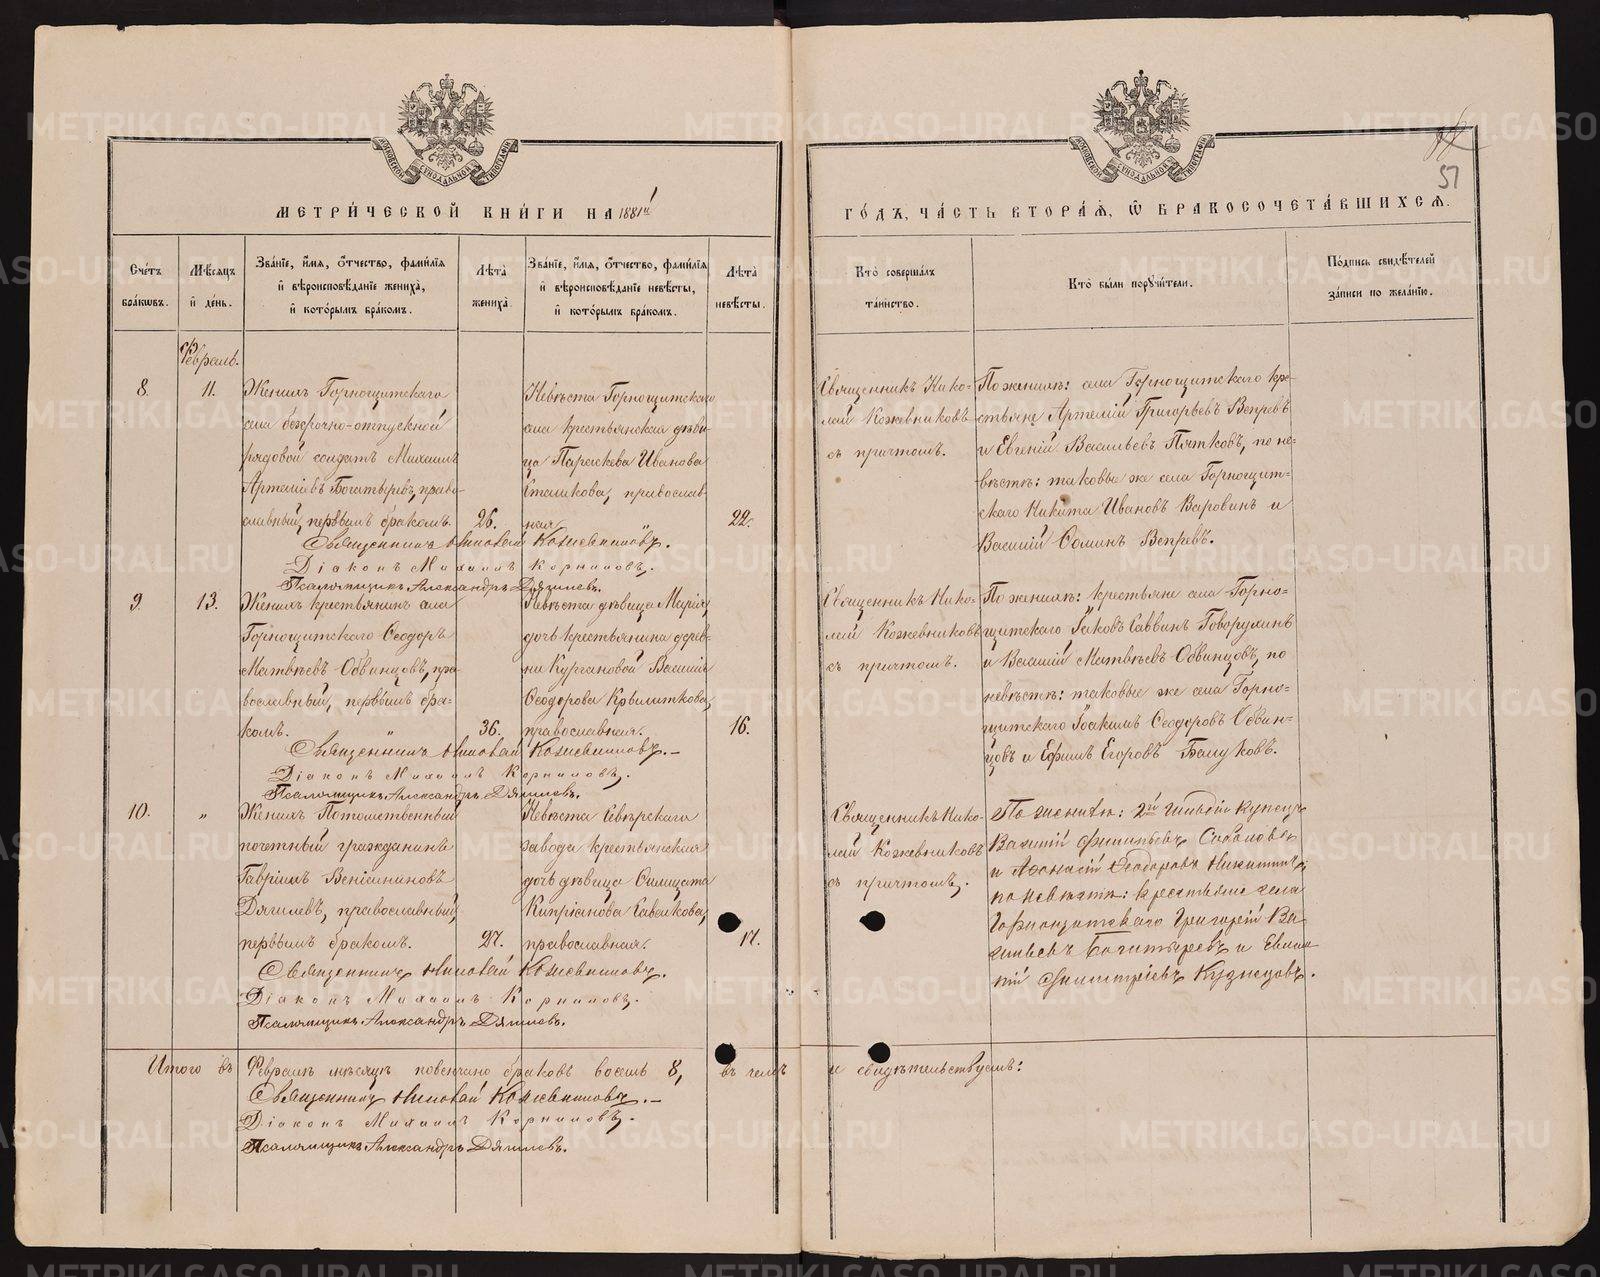 МЕТРИ́ЧЕСКОЙ КНИ́ГИ НА 1881й
ГО́ДЪ, ЧА́СТЬ ВТОРА́Я, Ѿ БРАКОСОЧЕТА́ВШИХСЯ.
57
Сче́тъ бра́ковъ.
Мѣ́сяцъ и де́нь.
Зва́нїе, и́мя, о́тчество, фами́лїя и вѣроисповѣ́данїе жениха̀, и кото́рымъ бра́комъ.
Лѣ́та жениха̀.
Зва́нїе, и́мя, о́тчество, фами́лїя и вѣроисповѣ́данїе невѣ́сты, и кото́рымъ бра́комъ.
Лѣ́та невѣ́сты.
Кто̀ соверша́лъ та́инство.
Кто̀ бы́ли поручи́тели.
По́дпись свидѣ́телей за́писи по жела́нїю.
Февраль.
8.
11.
Женихъ Горнощитскаго
села безсрочно-отпускной
рядовой солдатъ Михаилъ
Артемиевъ Богатыревъ, право-
славный, первымъ бракомъ.
26.
Невѣста Горнощитскаго
села крестьянская дѣви-
ца Параскева Иванова
православ-
ная
22.
Священникъ Нико-
лай Кожевниковъ
съ причтомъ.
По женихѣ: села Горнощитскаго кре-
стьяне Артемій Григорьевъ Вепревъ
и Евгеній Васильевъ Пятковъ, по не-
вѣстѣ: таковые же села Горнощит-
скаго Никита Ивановъ Варовинъ и
Василій Ѳоминъ Вепревъ.
Священникъ Николай Кожевниковъ.
Діаконъ Михаилъ Корниловъ.
Псаломщикъ Александръ Дягилевъ.
9.
13.
Женихъ крестьянинъ села
Горнощитскаго Ѳеодоръ
Матвѣевъ Обвинцовъ, пра-
вославный, первымъ бра-
комъ.
36.
Невѣста дѣвица Марія,
дочь крестьянина дерев-
ни Кургановой Василія
Ѳеодорова Крылаткова,
православная.
16.
Священникъ Нико-
лай Кожевниковъ
съ причтомъ.
По женихѣ: крестьяне села Горно-
щитскаго Іаковъ Саввинъ Говорухинъ
и Василій Матвѣевъ Обвинцовъ, по
невѣстѣ: таковые же села Горно-
щитскаго Іоакимъ Ѳеодоровъ Обвин-
цовъ и Ефимъ Егоровъ
Священникъ Николай Кожевниковъ.
Діаконъ Михаилъ Корниловъ.
Псаломщикъ Александръ Дягилевъ.
10.
„
Женихъ Потомственный
почетный гражданинъ
Гавріилъ Веніаминовъ
Дягилевъ, православный,
первымъ бракомъ.
27.
Невѣста Сѣверскаго
завода крестьянская
дочь дѣвица
Кипріанова Савелкова,
православная.
17.
Священникъ Нико-
лай Кожевниковъ
съ причтомъ.
По женихѣ: 2й гильдіи купецъ
Василій Филипьевъ Соболевъ
и Аѳанасій Ѳеодоровъ Никитинъ,
по невѣстѣ: крестьяне села
Горнощитскаго Григорій Ва-
сильевъ Богатыревъ и
Димитріевъ Кузнецовъ.
Священникъ Николай Кожевниковъ.
Діаконъ Михаилъ Корниловъ.
Псаломщикъ Александръ Дягилевъ.
Итого въ Февралѣ мѣсяцѣ повенчано браковъ восемь 8, въ чемъ и свидѣтельствуемъ:
Священникъ Николай Кожевниковъ.
Діаконъ Михаилъ Корниловъ.
Псаломщикъ Александръ Дягилевъ.
METRIKI.GASO-URAL.RU